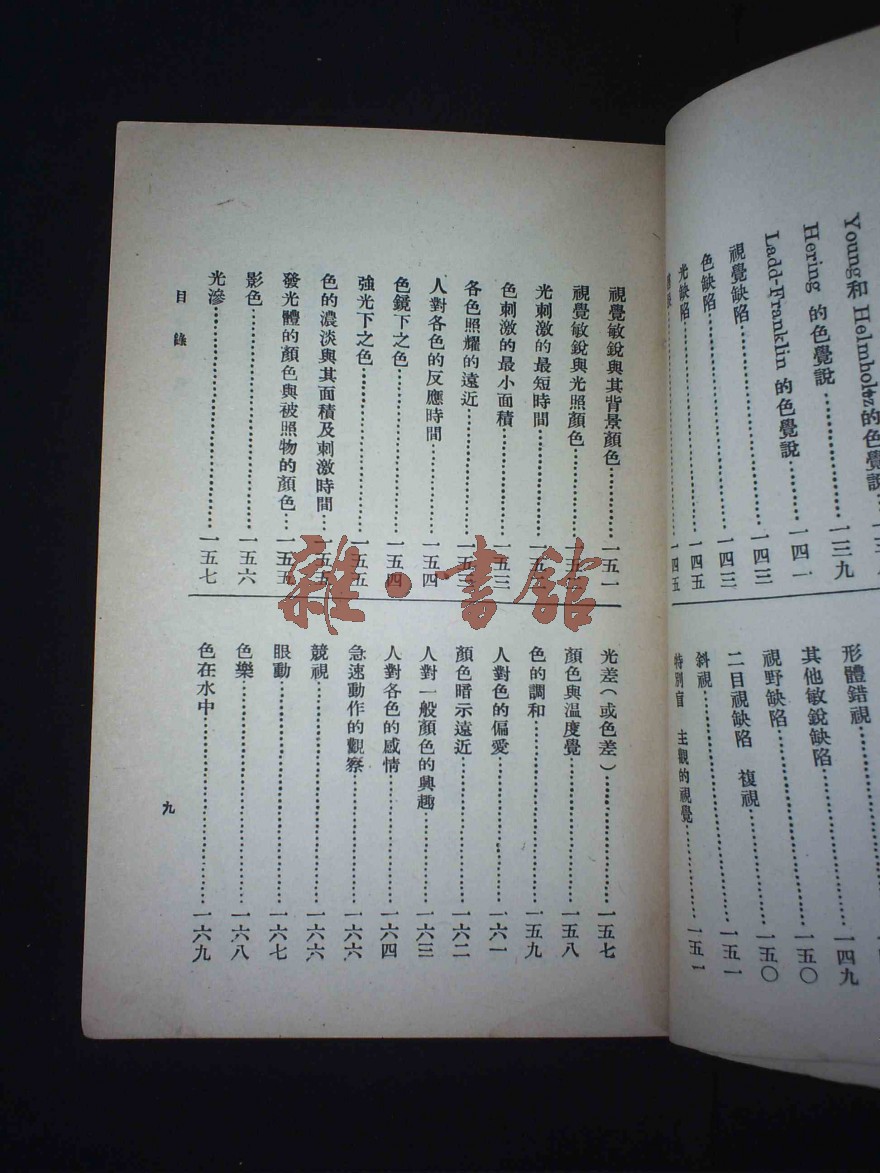 Young和 Helmholtz的色覺說
Hering 的色覺說………一三九
Ladd-Franklin 的色覺說………一四一
視覺缺陷………一四三
色缺陷………一四三
光缺陷………一四五
………一四五
形體錯視………一四九
其他敏銳缺陷………一五〇
視野缺陷………一五〇
二目視缺陷 複視………一五一
斜視………一五一
特別盲 主觀的視覺………一五一
視覺敏銳與其背景顏色………一五一
視覺敏銳與光照顏色………一五
光刺激的最短時間………一五
色刺激的最小面積………一五三
各色照耀的遠近………一五三
人對各色的反應時間………一五四
色鏡下之色………一五四
強光下之色………一五五
色的濃淡與其面積及刺激時間………一五五
發光體的顏色與被照物的顏色………一五五
影色………一五六
光滲………一五七
光差(或色差)………一五七
顏色與溫度覺………一五八
色的調和………一五九
人對色的偏愛………一六一
顏色暗示遠近………一六二
人對一般顏色的興趣………一六三
人對各色的感情………一六四
急速動作的觀察………一六六
競視………一六六
眼動………一六七
色樂………一六八
色在水中………一六九
目錄
九
雜·書館